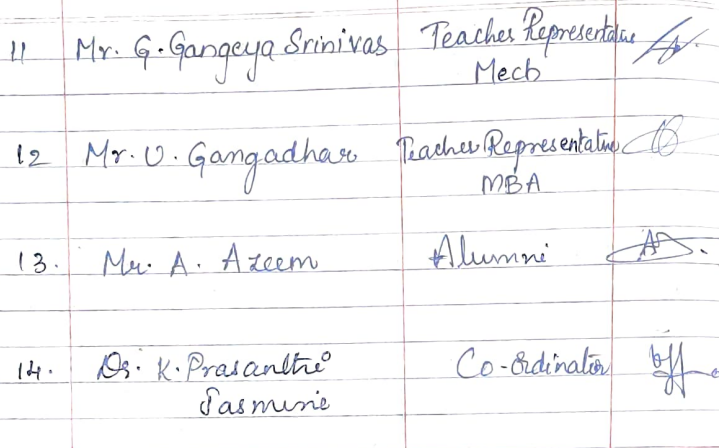 11 Mr. G. Gangeya Srinivas Teacher Representative
Mech
12 Mr. U. Gangadhar Teacher Representative
MBA
13. Mr. A. Azeem Alumni
14. Dr. K. Prasanthi Co-Ordinator
Jasmine